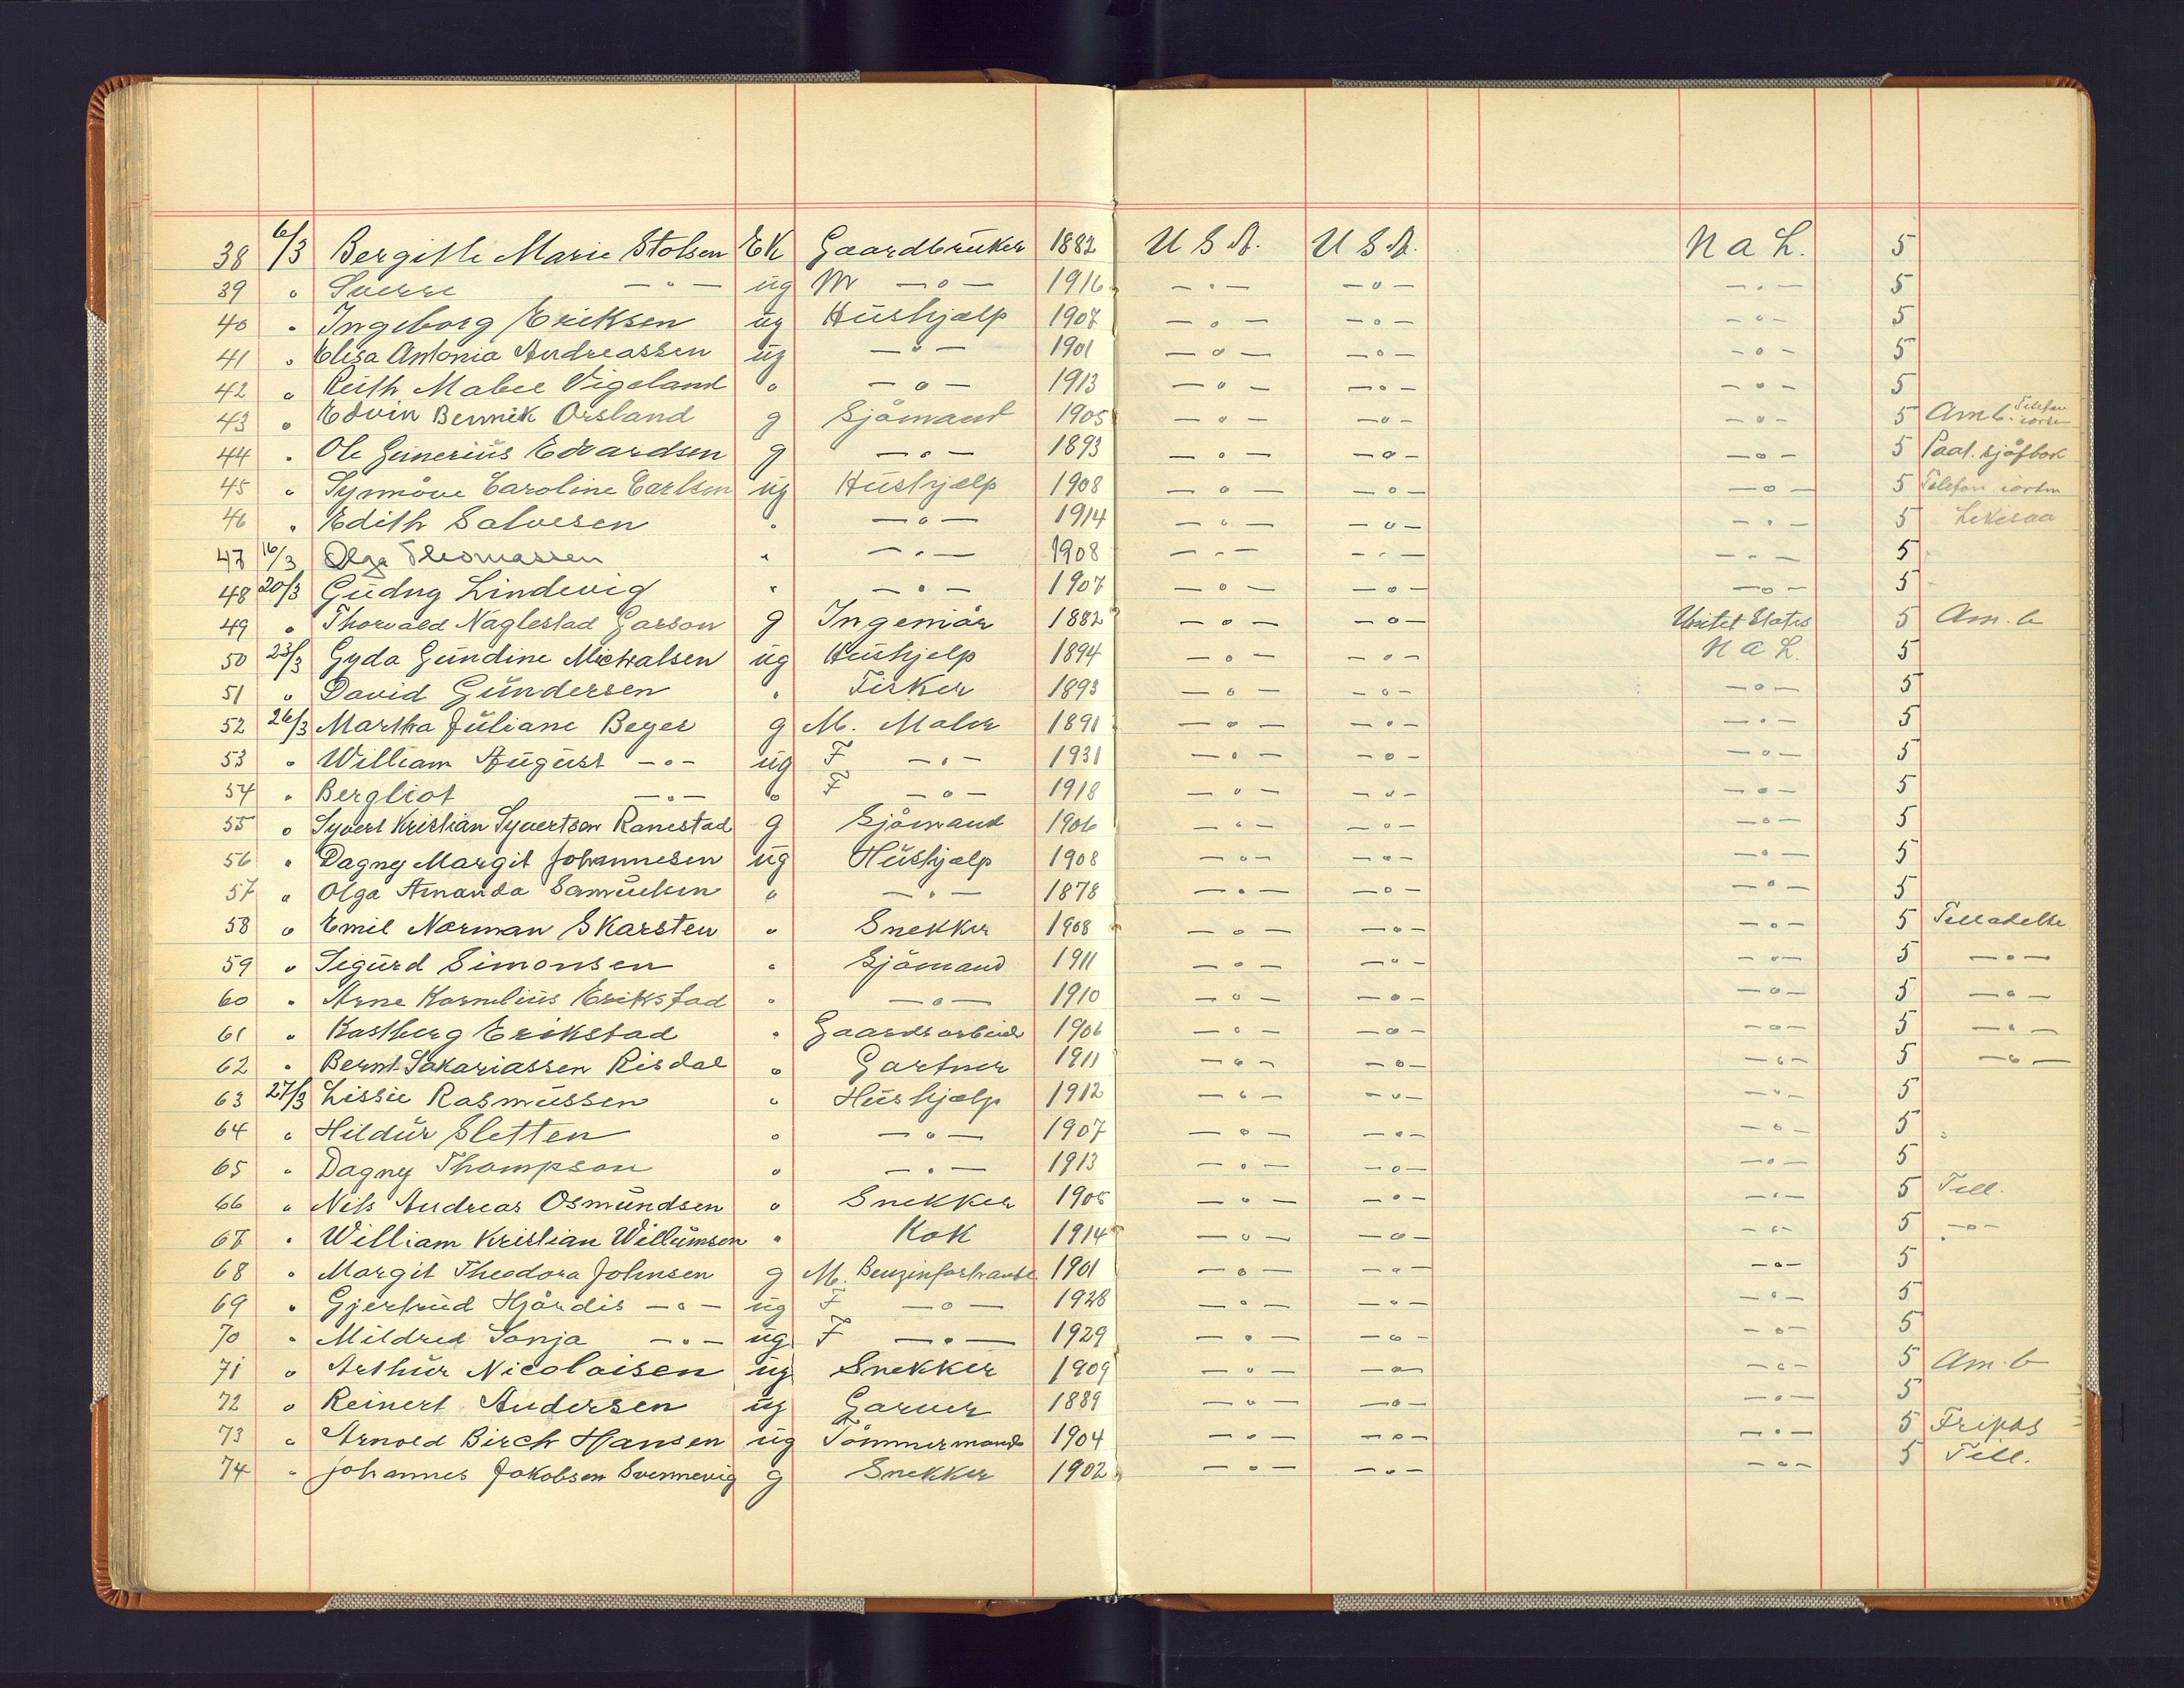 38 6/3 Bergitle Marie Stolsen EK Gaardbruker 1882 U S A. U S A. N a L. 5
39 " Sverre — " — ug M — o — 1916 — " — — o — — " — 5
40 " Ingeborg Eriksen ug Hushjælp 1907 — o — — o — — o — 5
41 " Elisa Antonia Andreassen ug — " — 1901 — o — — o — — o — 5
42 " Ruth Mabel Vigeland " — o — 1913 — o — — o — — o — 5
43 " Edvin Bennik Orsland g Sjömand 1905 — o — — o — — o — 5 Am b. Telefon
44 " Ole Gunerius Edvardsen g — o — 1893 — o — — o — — o — 5 Paat. sjöfbok
45 " Synnöve Caroline Carlsen ug Hushjælp 1908 — o — — o — — o — 5 Telefon
46 " Edith Salvesen " — o — 1914 — o — — o — — " — 5
47 16/3 Olga Thomassen " — " — 1908 — " — — " — — " — 5
48 20/3 Gudny Lindevig " — o — 1907 — o — — o — — o — 5
49 " Thorvald Naglestad Garson g Ingeniör 1882 — o — — o — Unitet States 5 Am. b
50 23/3 Gyda Gundine Michalsen ug Hushjelp 1894 — o — — o — N a L. 5
51 " David Gundersen " Fisker 1893 — o — — o — — o — 5
52 26/3 Martha Juliane Beyer g M. Maler 1891 — o — — o — — o — 5
53 " William August — o — ug F — " — 1931 — o — — o — — o — 5
54 " Bergliot — o — " F — o — 1918 — o — — o — — o — 5
55 " Syvert Kristian Syvertsen Ranestad g Sjömand 1906 — o — — o — — o — 5
56 " Dagny Margit Johannesen ug Hushjælp 1908 — o — — o — — o — 5
57 " Olga Amanda Samuelsen " — " — 1878 — o — — o — — o — 5
58 " Emil Norman Skarsten " Snekker 1908 — o — — o — — o — 5 Tilladelse
59 " Sigurd Simonsen " Sjömand 1911 — o — — o — — o — 5 — o —
60 " Arne Kornelius Erikstad " — o — 1910 — o — — o — — o — 5 — o —
61 " Kastberg Erikstad " Gaardsarbeid 1906 — o — — o — — o — 5 — o —
62 " Bernt Sakariassen Risdal " Gartner 1911 — o — — o — — o — 5 — o —
63 27/3 Lissie Rasmussen " Hushjælp 1912 — o — — o — — " — 5
64 " Hildur Sletten " — o — 1907 — o — — o — — o — 5
65 " Dagny Thompson " — o — 1913 — o — — o — — o — 5
66 " Nils Andreas Osmundsen " Snekker 1905 — o — — o — — " — 5 Till.
67 " William Kristian Willumsen " Kok 1914 — o — — o — — o — 5 — o —
68 " Margit Theodora Johnsen g M. Benzinforhandl. 1901 — o — — o — — o — 5
69 " Gjertrud Hjördis — o — ug F — o — 1928 — o — — o — — o — 5
70 " Mildred Sonja — o — ug F — o — 1929 — o — — o — — o — 5
71 " Arthur Nicolaisen ug Snekker 1909 — o — — o — — o — 5 Am. b
72 " Reinert Andersen ug Garver 1889 — o — — o — — o — 5
73 " Arnold Birch Hansen ug Tömmermand 1904 — o — — o — — o — 5 Fripas
74 " Johannes Jakobsen Svennevig g Snekker 1902 — o — — o — — o — 5 Till.